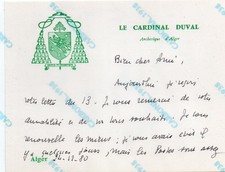 LE CARDINAL DUVAL
Archevêque d'Alger
Bien cher Ami,
Aujourd'hui je reçois
votre lettre du 13. Je vous remercie de votre
amabilité et de vos bons souhaits. Je vous
renouvelle les miens; je vous avais écrit il
y a quelques jours, mais les Postes sont assez
Alger 24.12.80